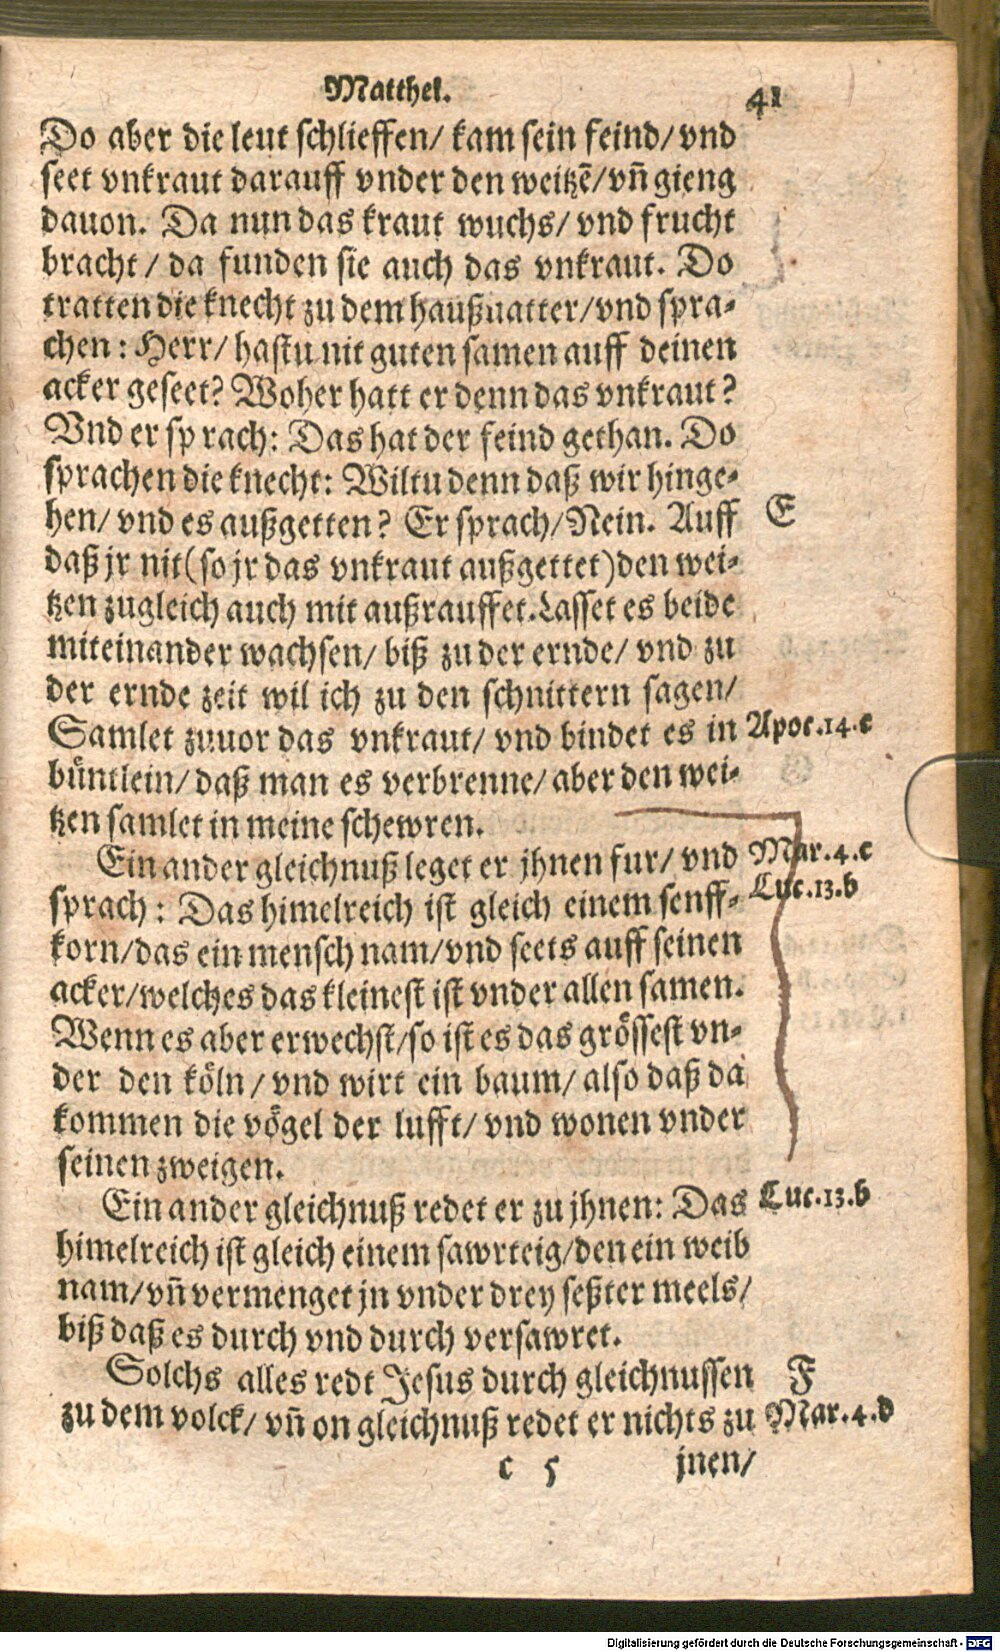 Matthei. 41
Do aber die leut schlieffen/ kam sein feind/ vnd
seet vnkraut darauff vnder den weitzē/ vn̄ gieng
dauon. Da nun das kraut wuchs/ vnd frucht
bracht/ da funden sie auch das vnkraut. Do
tratten die knecht zu dem haußuatter/ vnd spra⸗
chen: Herr/ hastu nit guten samen auff deinen
acker geseet? Woher hatt er denn das vnkraut?
Vnd er sprach: Das hat der feind gethan. Do
sprachen die knecht: Wiltu denn daß wir hinge⸗
hen/ vnd es außgetten? Er sprach/ Nein. Auff E
daß jr nit (so jr das vnkraut außgettet) den wei⸗
tzen zugleich auch mit außrauffet. Lasset es beide
miteinander wachsen/ biß zu der ernde/ vnd zu
der ernde zeit wil ich zu den schnittern sagen/
Samlet zuuor das vnkraut/ vnd bindet es in Apoc. 14. c
büntlein/ daß man es verbrenne/ aber den wei⸗
tzen samlet in meine schewren.
Ein ander gleichnuß leget er jhnen fur/ vnd Mar. 4. c
sprach: Das himelreich ist gleich einem senff⸗ Luc. 13. b
korn/ das ein mensch nam/ vnd seets auff seinen
acker/ welches das kleinest ist vnder allen samen.
Wenn es aber erwechst/ so ist es das grössest vn⸗
der den köln/ vnd wirt ein baum/ also daß da
kommen die vögel der lufft/ vnd wonen vnder
seinen zweigen.
Ein ander gleichnuß redet er zu jhnen: Das Luc. 13. b
himelreich ist gleich einem sawrteig/ den ein weib
nam/ vn̄ vermenget jn vnder drey seßter meels/
biß daß es durch vnd durch versawret.
Solchs alles redt Jesus durch gleichnussen F
zu dem volck/ vn̄ on gleichnuß redet er nichts zu Mar. 4. d
c 5 jnen/
Digitalisierung gefördert durch die Deutsche Forschungsgemeinschaft - DFG